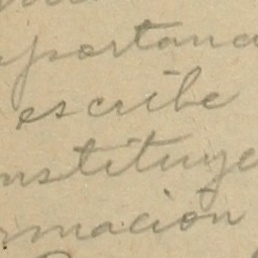 portanc
escribe
nstituye
rmación